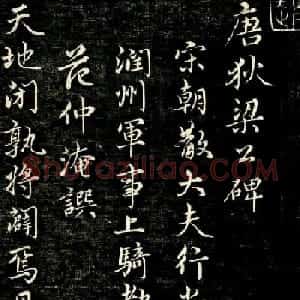 唐狄梁公碑
宋朝散大夫行
潤州軍事上騎
范仲淹譔
天地閉孰將闢焉
Shufaziliao.com